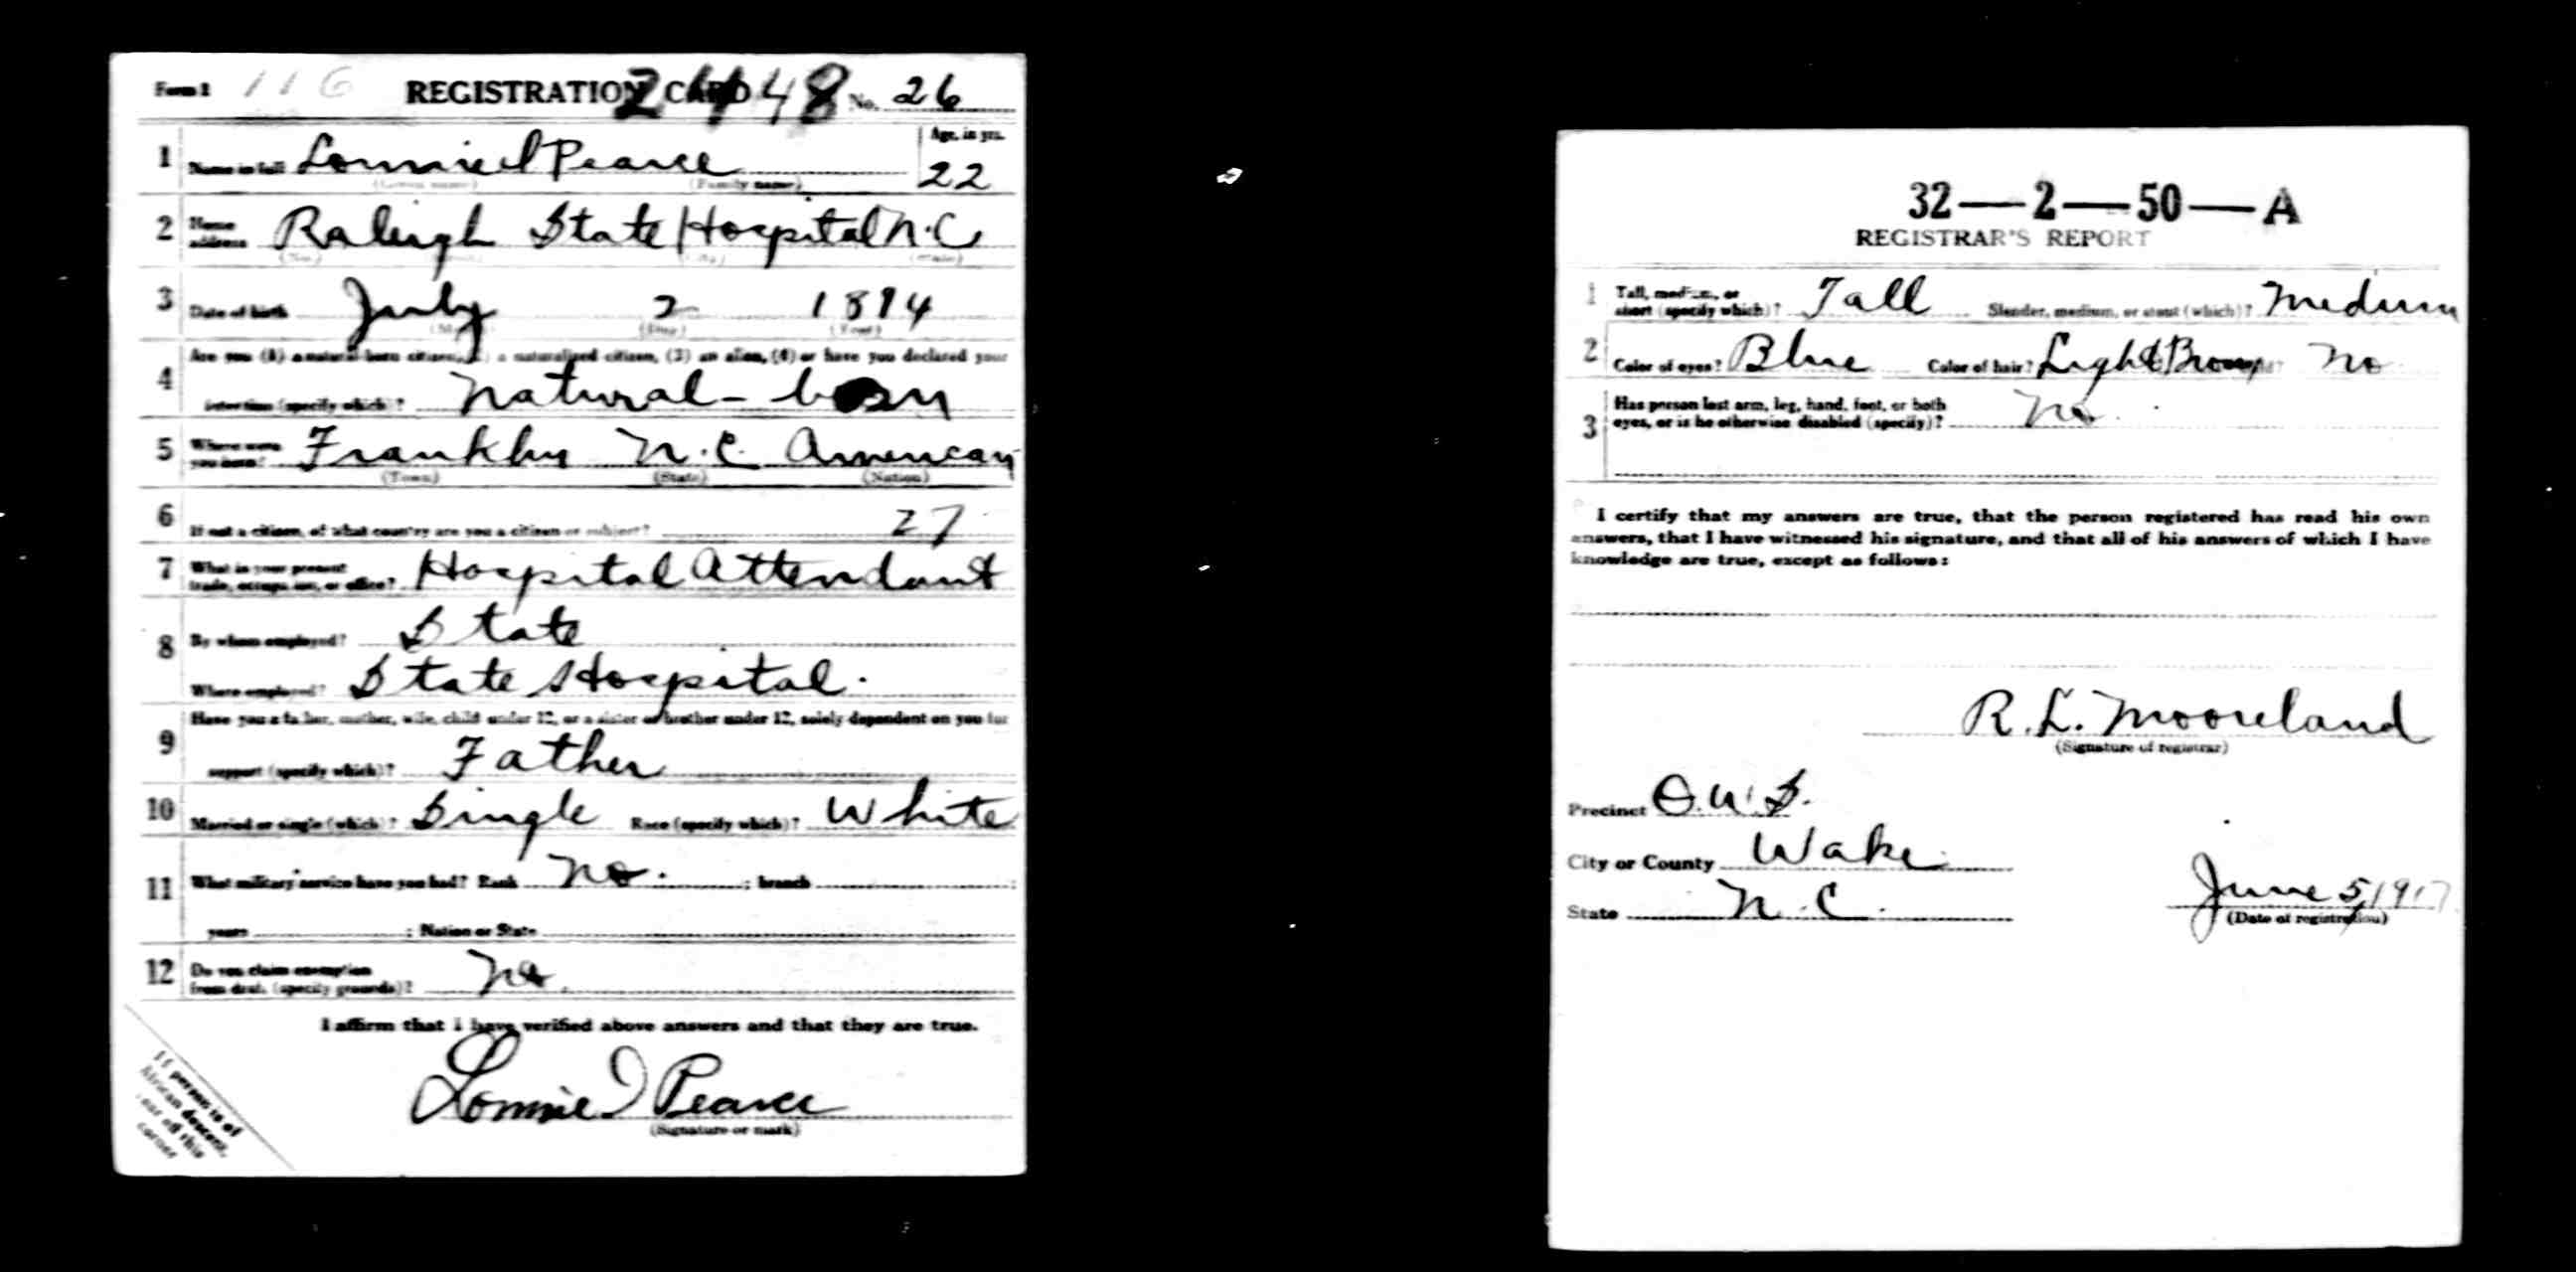 Form 1 116 REGISTRATION CARD 2448 No. 26
1 Name in full Lonnie I Pearce Age, in yrs. 22
(Given name) (Family name)
2 Home address Raleigh State Hospital N.C.
(No.) (Street) (City) (State)
3 Date of birth July 2 1894
(Month) (Day) (Year)
4 Are you (1) a natural-born citizen, (2) a naturalized citizen, (3) an alien, (4) or have you declared your
intention (specify which)? Natural-born
5 Where were you born? Franklin N.C. American
(Town) (State) (Nation)
6 If not a citizen, of what country are you a citizen or subject? 27
7 What is your present trade, occupation, or office? Hospital Attendant
8 By whom employed? State
Where employed? State Hospital.
9 Have you a father, mother, wife, child under 12, or a sister or brother under 12, solely dependent on you for
support (specify which)? Father
10 Married or single (which)? Single Race (specify which)? White
11 What military service have you had? Rank No. ; branch ;
years ; Nation or State
12 Do you claim exemption from draft (specify grounds)? No.
I affirm that I have verified above answers and that they are true.
Lonnie I Pearce
(Signature or mark)
If person is of
African descent,
tear off this
corner
32—2—50—A
REGISTRAR'S REPORT
1 Tall, medium, or short (specify which)? Tall Slender, medium, or stout (which)? Medium
2 Color of eyes? Blue Color of hair? Light Brown No
3 Has person lost arm, leg, hand, foot, or both
eyes, or is he otherwise disabled (specify)? No.
I certify that my answers are true, that the person registered has read his own
answers, that I have witnessed his signature, and that all of his answers of which I have
knowledge are true, except as follows:
R. L. Mooreland
(Signature of registrar)
Precinct
City or County Wake
State N.C. June 5, 1917
(Date of registration)